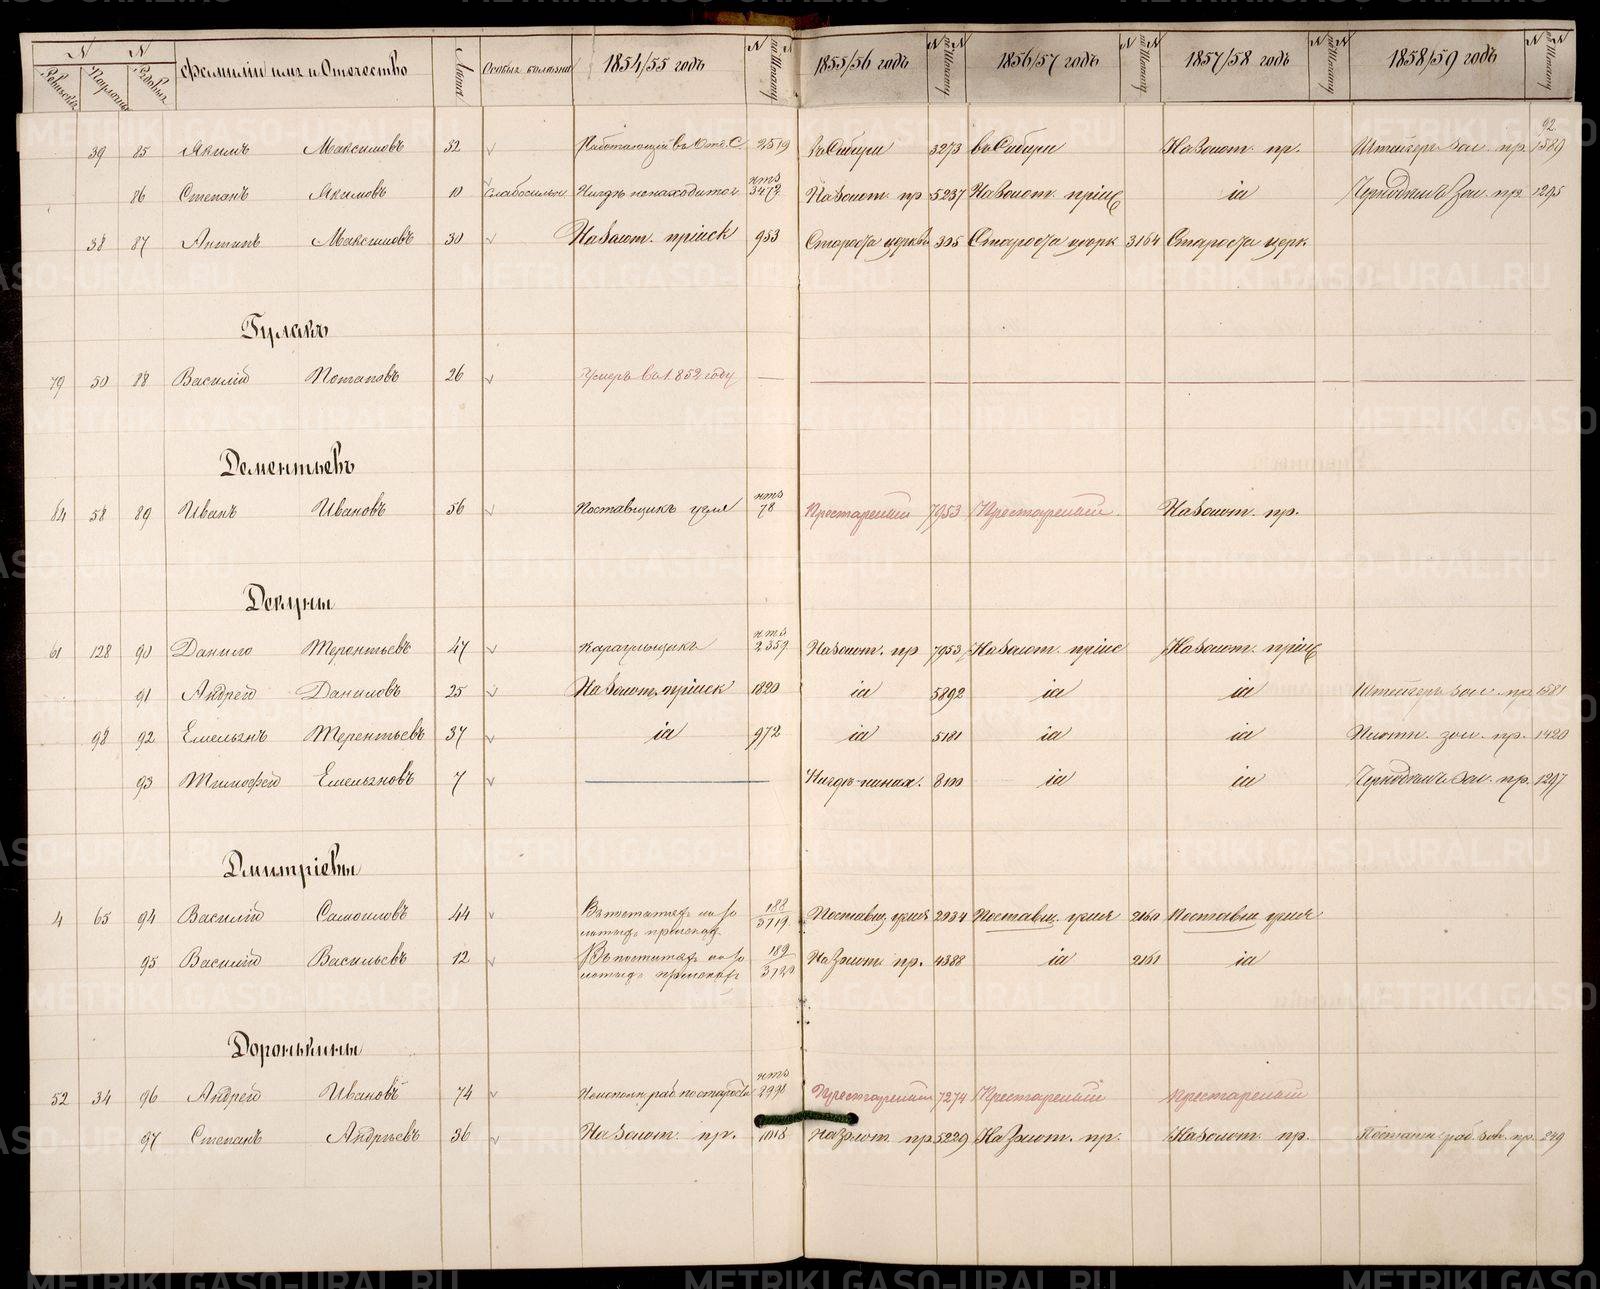 № № Фамилии имя и Отечество Лета Особыя болезни 1854/55 годъ № по Штату 1855/56 годъ № по Штату № 1856/57 годъ № по Штату № 1857/58 годъ № по Штату № 1858/59 годъ № по Штату №
Ревизск. Рядовых
92
39 85 Якимъ Максимовъ 32 Работающій въ 2519 въ Сибири 3273 въ Сибири На Золот. пр. Штейгеръ зол. пр. 1589
86 Степанъ Якимовъ 10 Слабосилен Нигдѣ не находится нтз 3472 На Золот. пр 5237 На Золот. пріис іа зол. пр. 1295
38 87 Антипъ Максимовъ 30 На Золот. пріиск 953 Староста церков 305 Староста церк 3164 Староста церк
Гулакъ
79 50 88 Василій Потаповъ 26 Умеръ въ 1852 году
Дементьевъ
84 58 89 Иванъ Ивановъ 56 Поставщикъ угля нтз 78 Престарелый 7953 Престарелый На Золот. пр.
Деягуны
61 128 90 Данило Терентьевъ 47 Караульщикъ нтз 2359 На Золот. пр 7953 На Золот. пріис На Золот. пріис
91 Андрей Даниловъ 25 На Золот. пріиск 1820 іа 5892 іа іа Штейгеръ зол. пр 1581
98 92 Емельянъ Терентьевъ 37 іа 972 іа 5181 іа іа Плотн. зол. пр. 1420
93 Тимофей Емельяновъ 7 Нигдѣ не нах. 8100 іа іа зол. пр. 1297
Дмитріевы
4 65 94 Василій Самоиловъ 44 В постатеѣ на зо лотыхъ пріискахъ 188/3719 Поставщ. угля 2934 Поставщ. угля 2160 Поставщ угля
95 Василій Васильевъ 12 В постатеѣ на зо лотыхъ пріискахъ 189/3720 На Золот. пр. 4388 іа 2161 іа
Доронькины
52 34 96 Андрей Ивановъ 74 Неисполн. раб. по старости нтз 2991 Престарелый 7274 Престарелый Престарелый
97 Степанъ Андреевъ 36 На Золот. пр. 1018 На Золот. пр 5229 На Золот. пр. На Золот. пр. раб. зол. пр. 249
METRIKI.GASO-URAL.RU